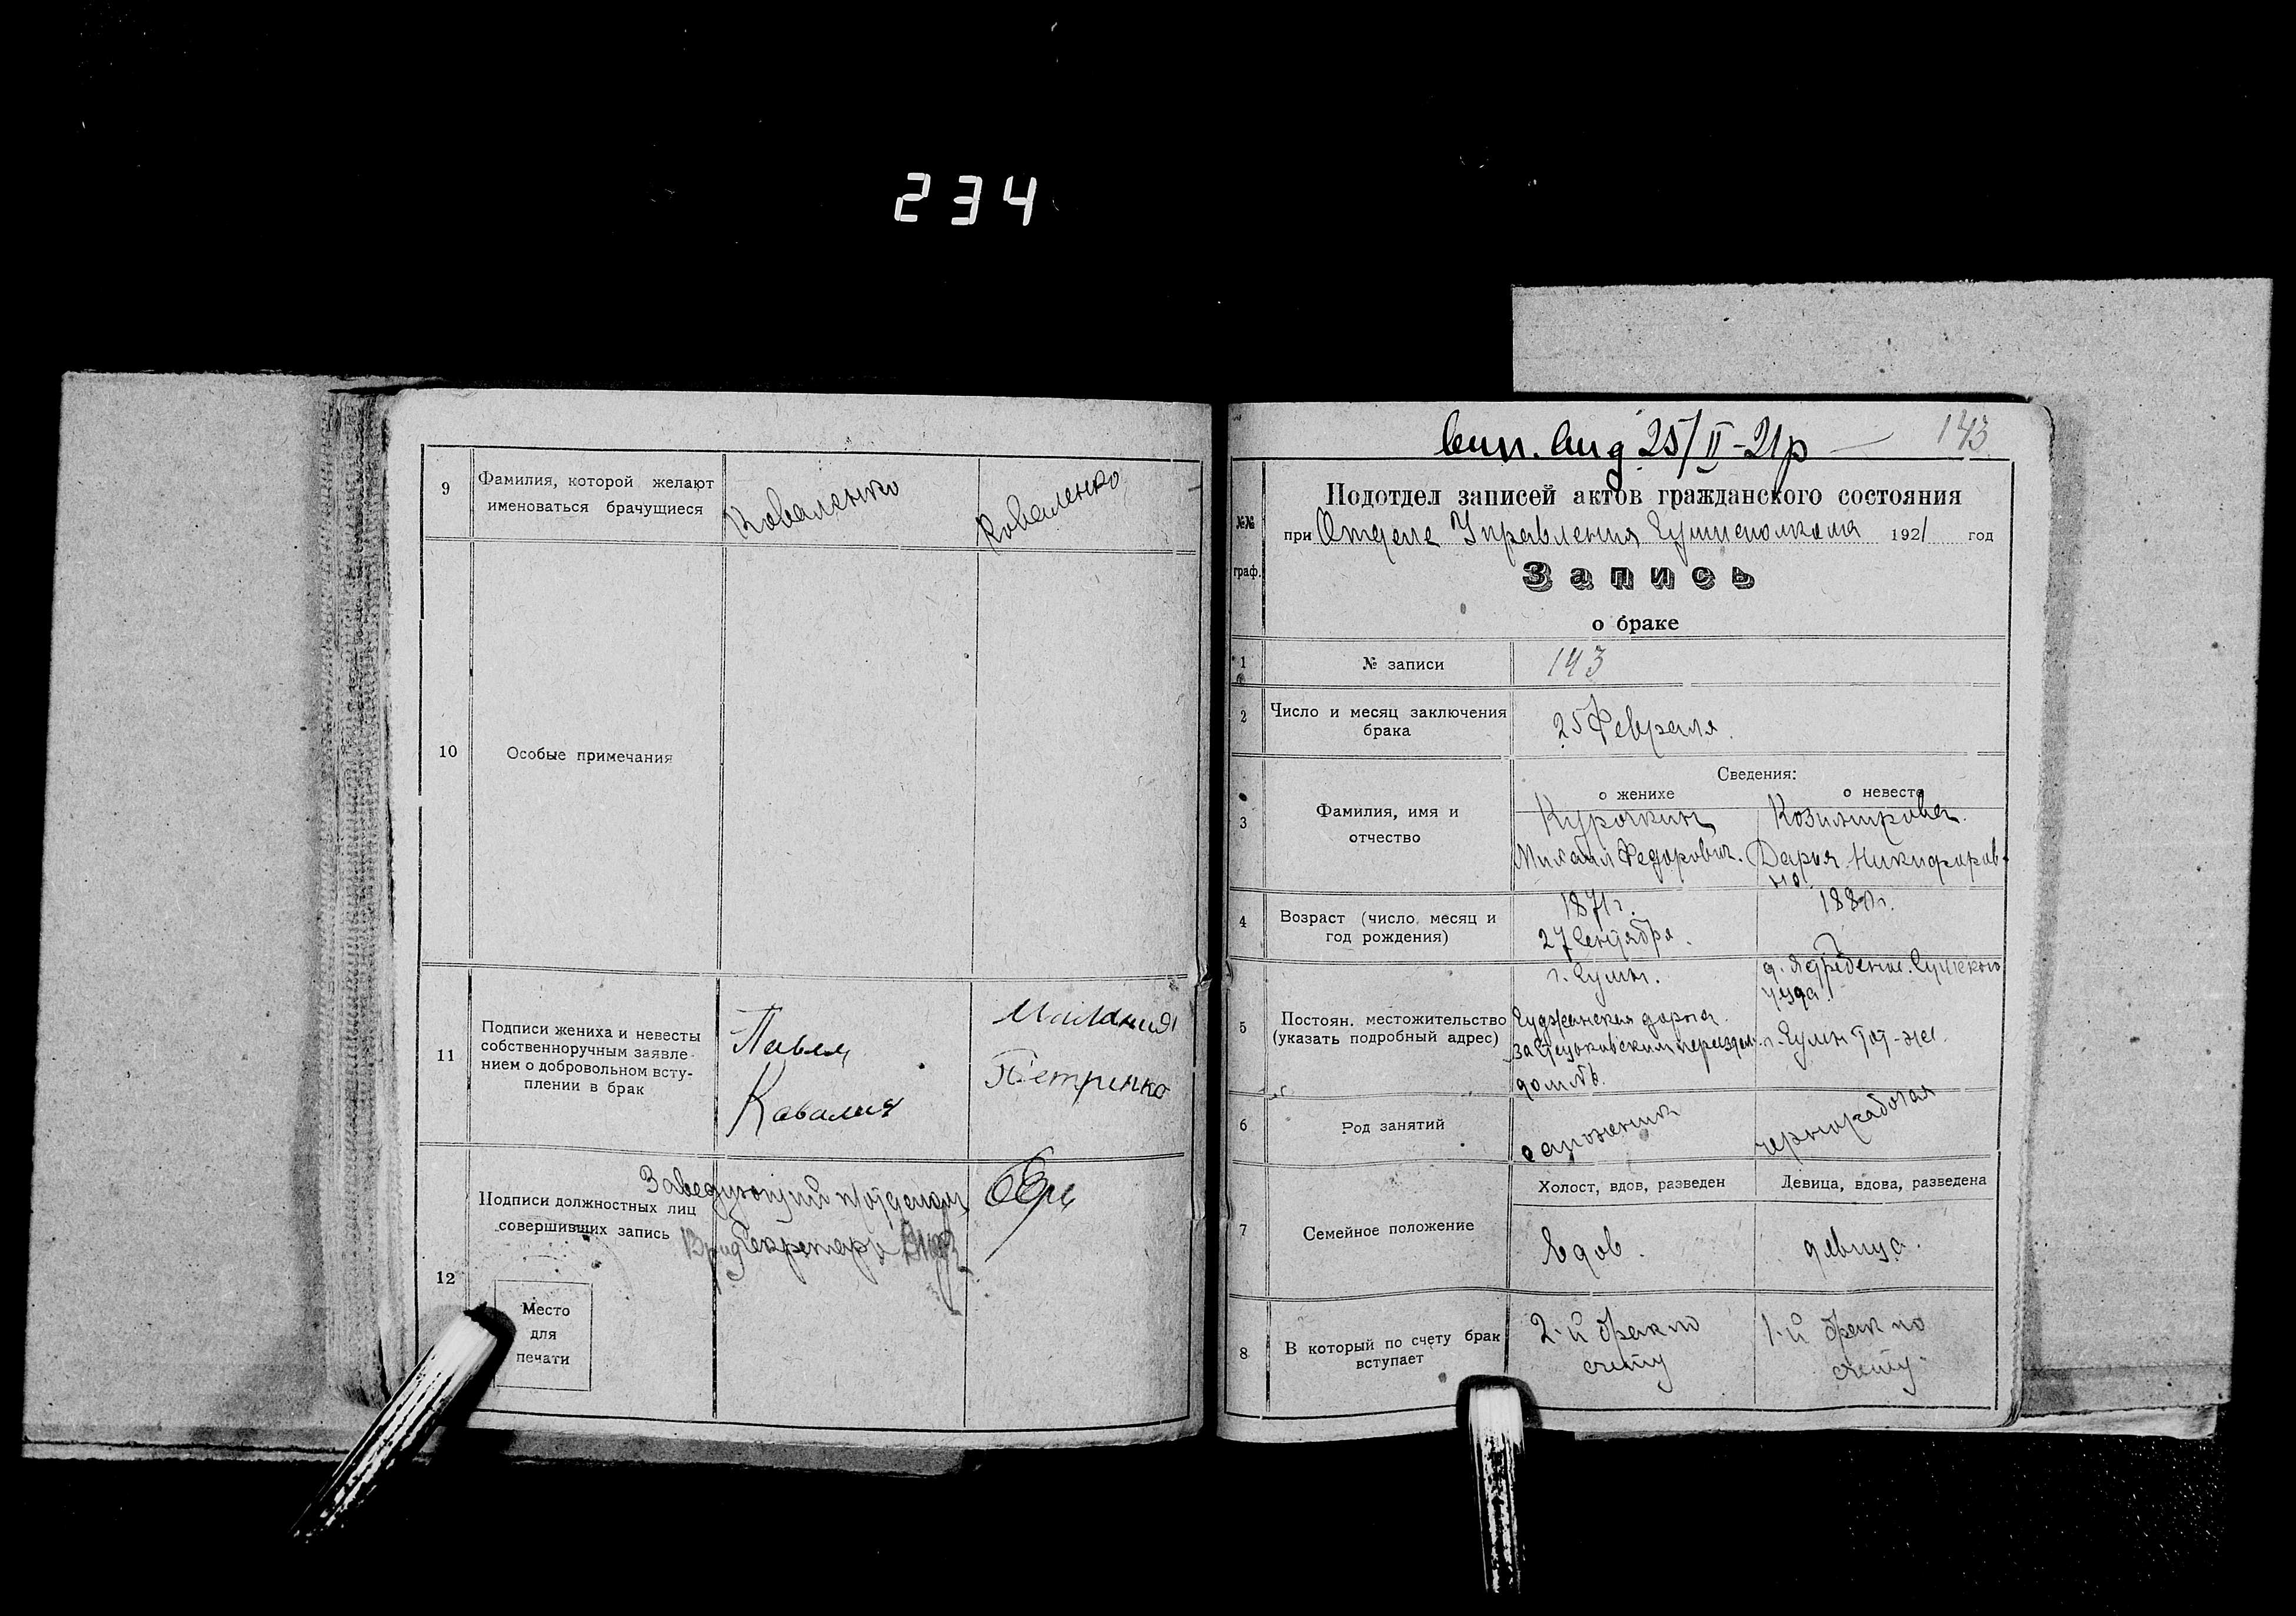 234
9
Фамилия, которой желают
именоваться брачущиеся
Коваленко
Коваленко
10
Особые примечания
11
Подписи жениха и невесты
собственноручным заявле-
нием о добровольном всту-
плении в брак
Павел
Малания
Петренко
12
Подписи должностных лиц
совершивших запись
Заведующий п/отделом
Врид Секретаря
Место
для
печати
25/II-21р
143
Подотдел записей актов гражданского состояния
№№
граф.
при Отделе Управления Сумисполкома 1921 год
Запись
о браке
1
№ записи
143
2
Число и месяц заключения
брака
25 Февраля.
3
Фамилия, имя и
отчество
Сведения:
о женихе
о невесте
Курочкин
Михаил Федорович.
Дарья Никифоров-
на
4
Возраст (число, месяц и
год рождения)
1871 г.
27 Сентября.
5
Постоян. местожительство
(указать подробный адрес)
г. Сумы.
Суджанская дорога
домъ
Сумского
уезда.
г. Сумы тот-же
6
Род занятий
сапожник
чернорабочая
7
Семейное положение
Холост, вдов, разведен
Девица, вдова, разведена
Вдов.
девица.
8
В который по счету брак
вступает
2-й брак по
счету
1-й брак по
счету.